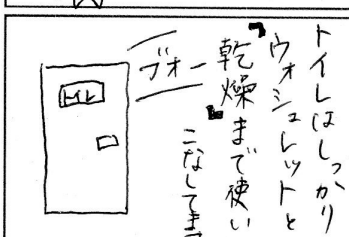 トイレはしっかり
ウォシュレットと
「乾燥」まで使い
こなしてます
ブォー
トイレ